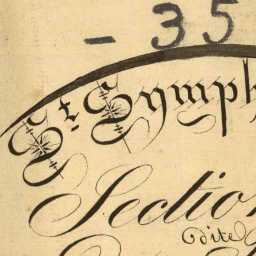 - 35
St. Symph
Section
dite